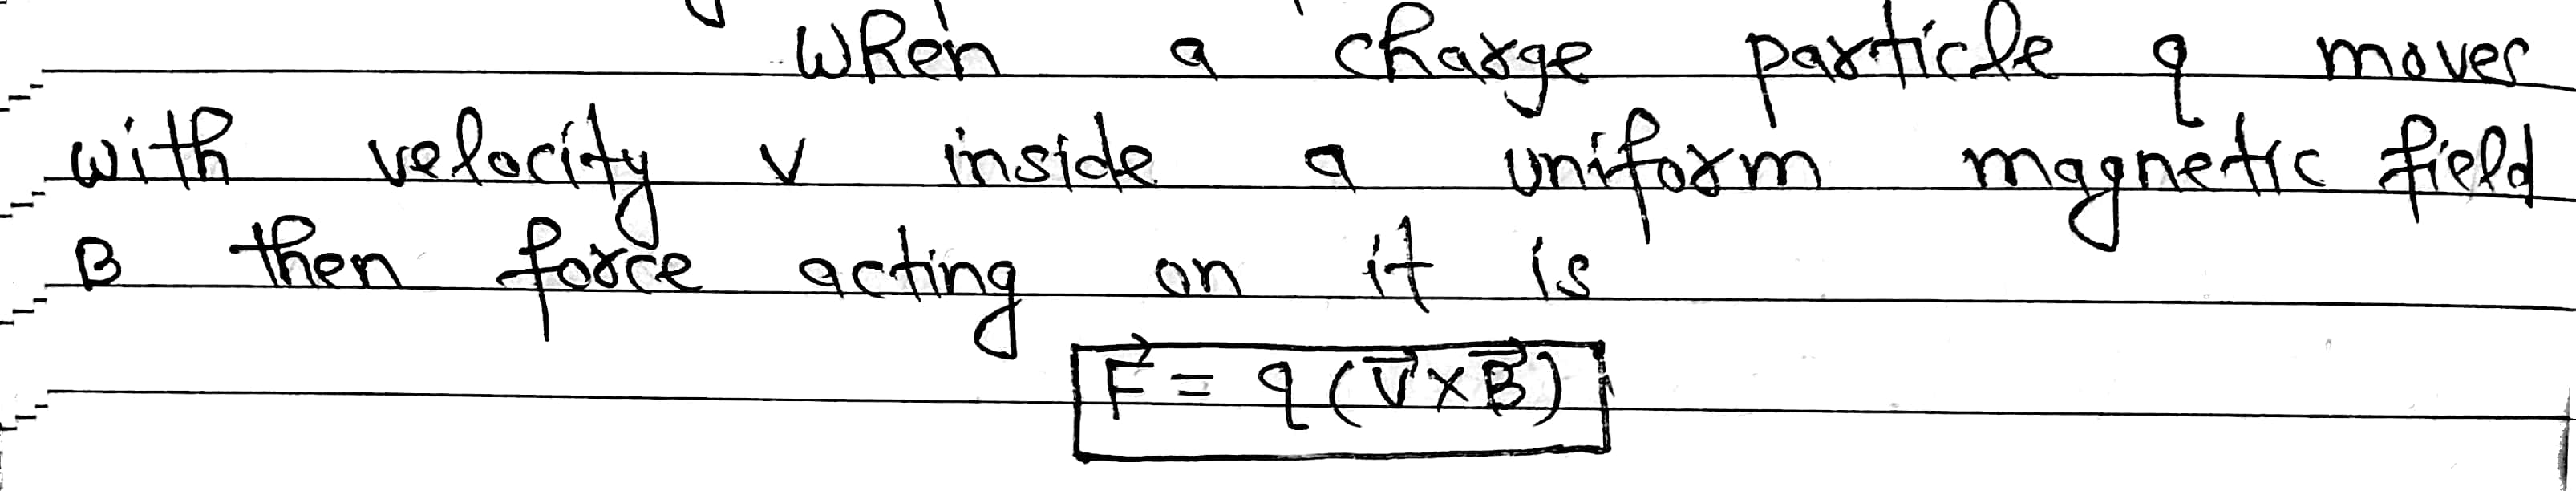 When a charge particle q moves
with velocity v inside a uniform magnetic field
B then force acting on it is
F⃗ = q (V⃗ × B⃗)